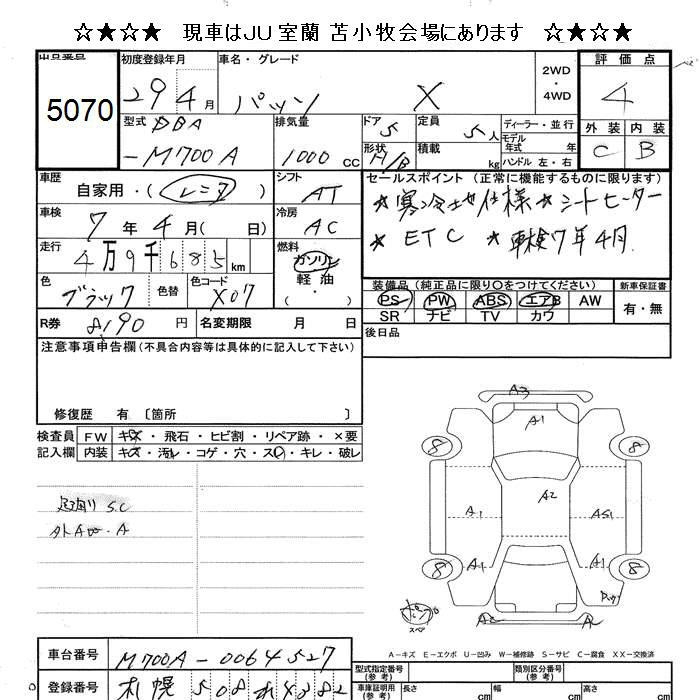 ☆★☆★ 現車はJU室蘭 苫小牧会場にあります ☆★☆★
出品番号 5070
初度登録年月 29 4月
車名・グレード パッソ X
2WD ・ 4WD
評価点 4
外装 内装
C B
型式 DBA
-M700A
排気量 1000 cc
ドア 5
形状 H/B
定員 5人
積載 kg
ディーラー・並行
モデル年式 年
ハンドル 左・右
車歴 自家用・(レンタ)
シフト AT
車検 7年4月(  日)
冷房 AC
走行 4万9千685km
燃料 ガソリン
軽油
・
( )
色 ブラック 色替
色コード X07
R券 8190 円
名変期限 月 日
セールスポイント (正常に機能するものに限ります)
★寒冷地仕様 ★シートヒーター
★ETC ★車検7年4月
装備品 (純正品に限り○をつけてください)
PS PW ABS エアB AW
SR ナビ TV カワ
新車保証書
有・無
後日品
注意事項申告欄(不具合内容等は具体的に記入して下さい)
修復歴 有 〔箇所 〕
検査員記入欄
FW キズ・飛石・ヒビ割・リペア跡・×要
内装 キズ・汚レ・コゲ・穴・スレ・キレ・破レ
足廻り S.C
A
A3
A1
8 8
A2
A1 AS1
A1 A1
8 8
スペア
A2 A2
A-キズ E-エクボ U-凹み W-補修跡 S-サビ C-腐食 XX-交換済
車台番号 M700A-0064527
登録番号 札幌 508
型式指定番号(参考)
類別区分番号(参考)
車庫証明用(参考) 長さ cm 幅 cm 高さ cm